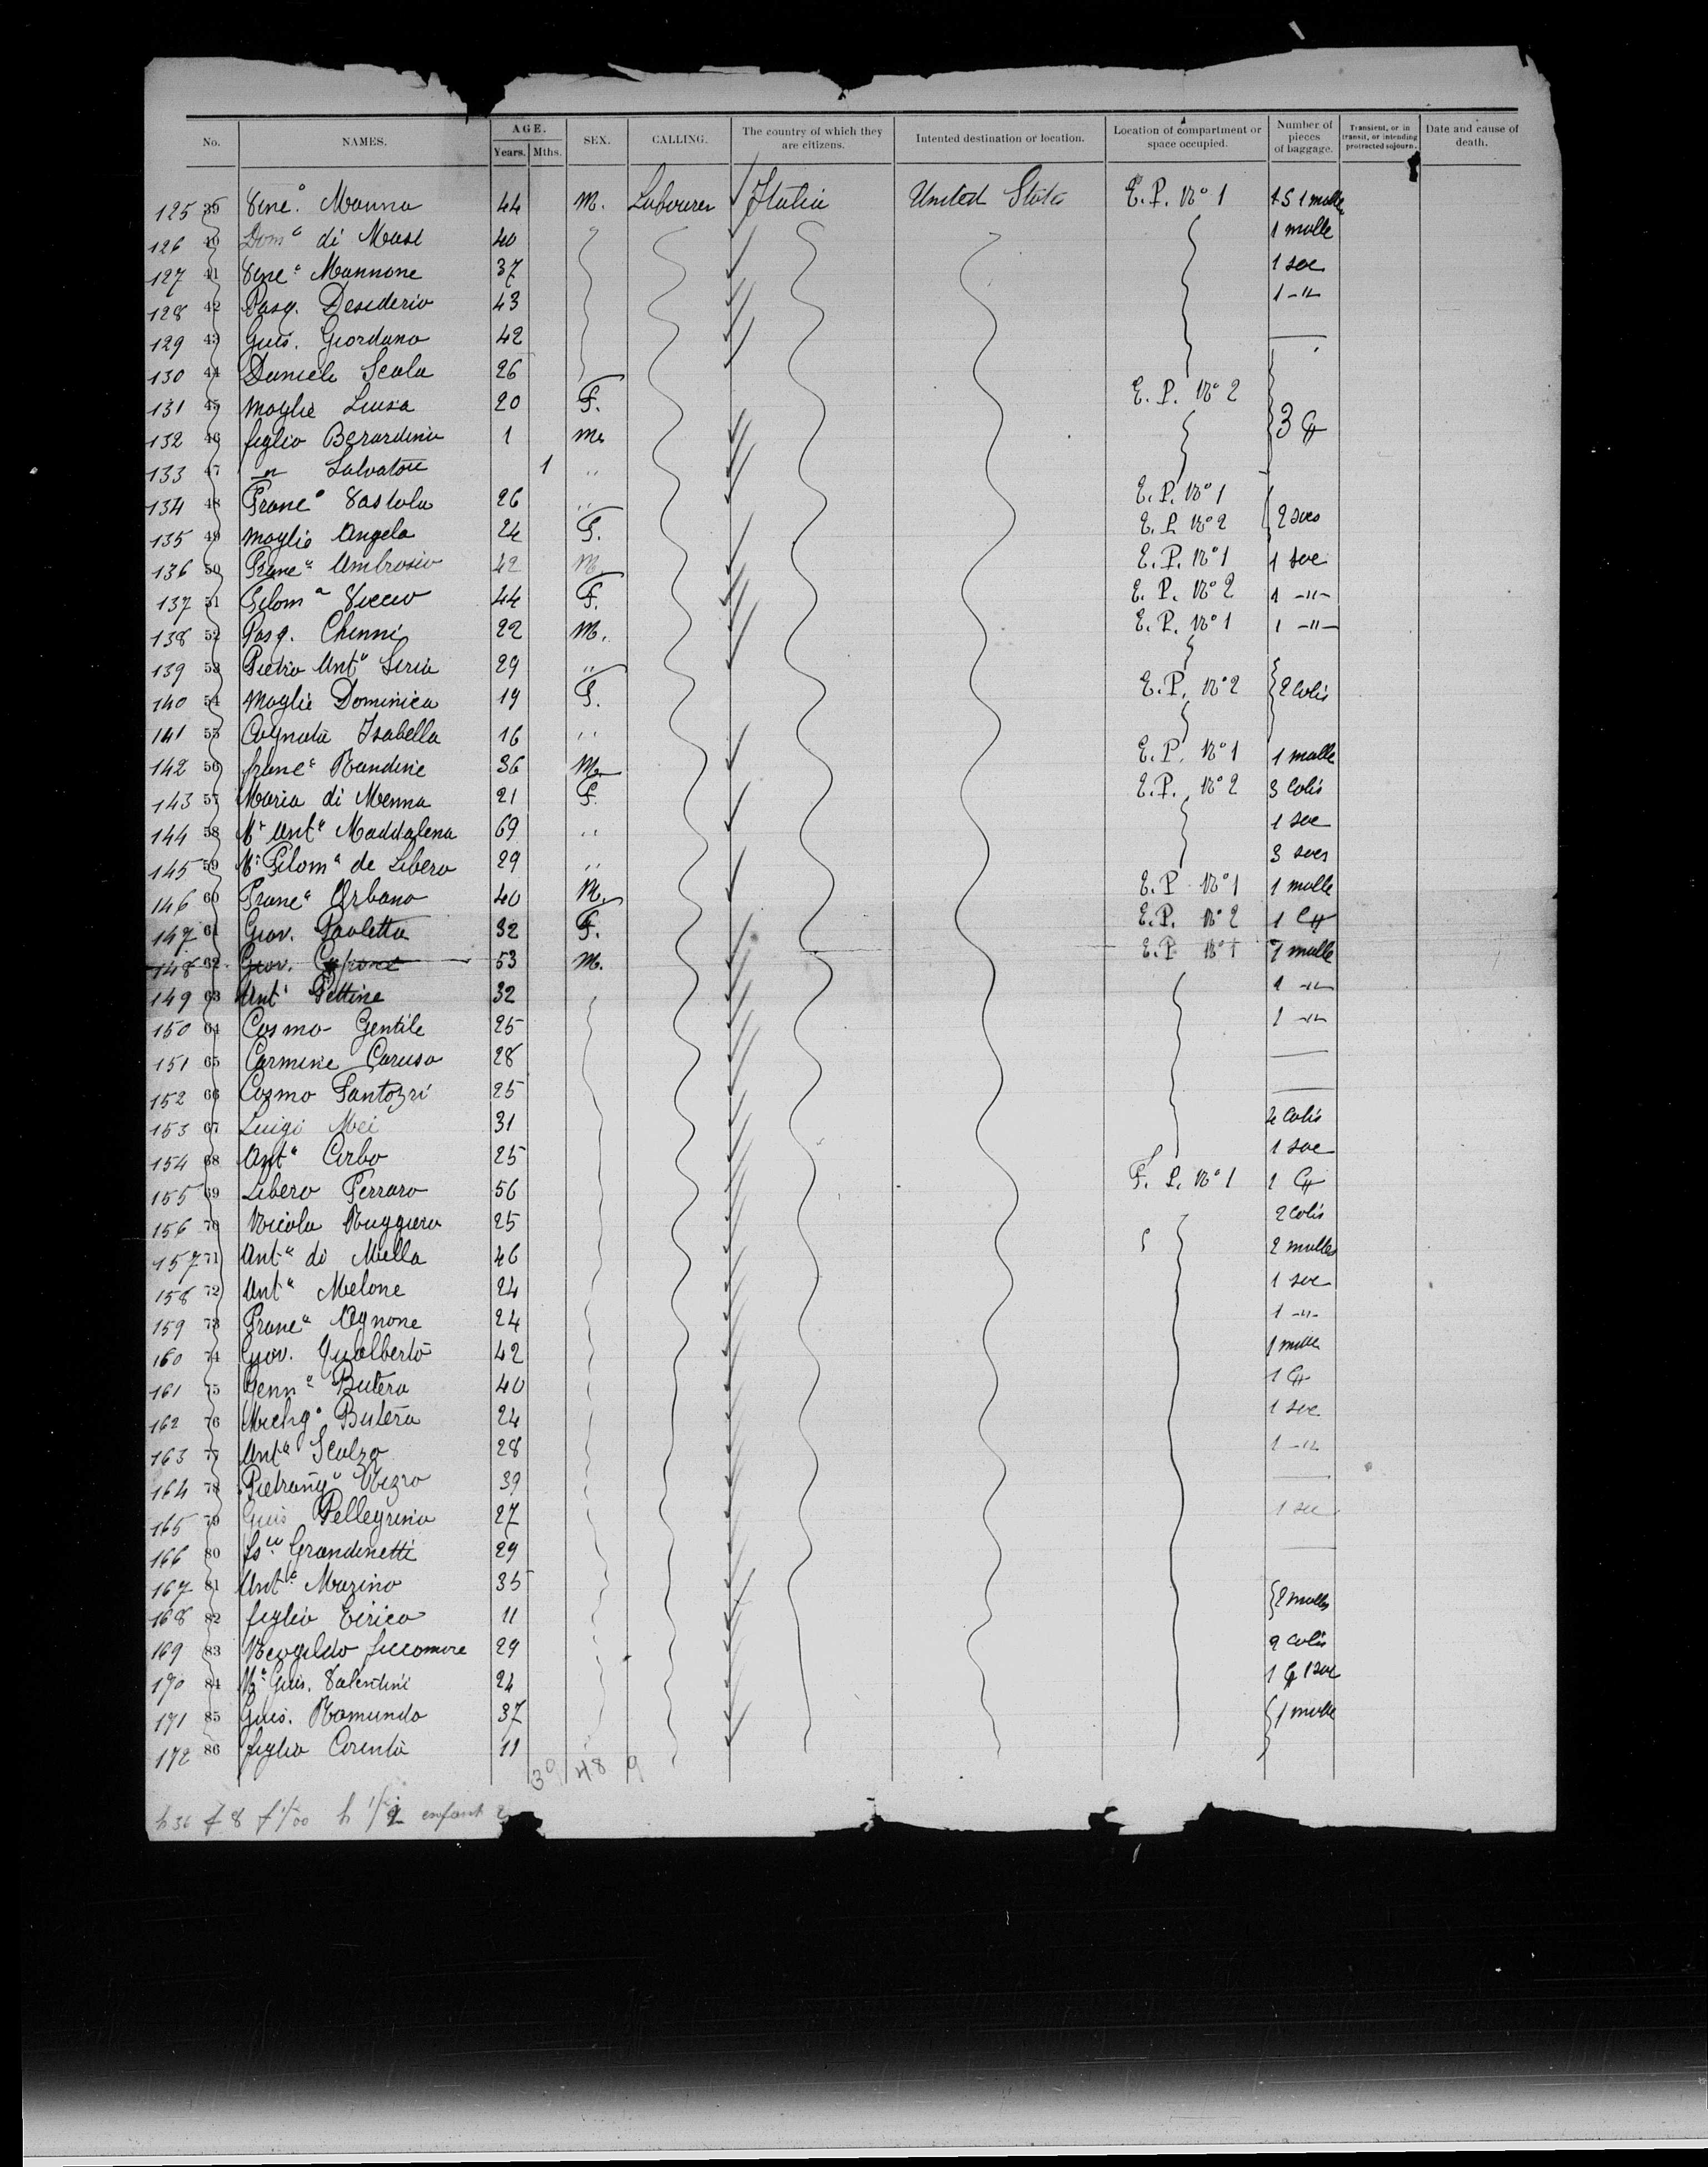 No. NAMES. AGE. Years. Mths. SEX. CALLING. The country of which they are citizens. Intented destination or location. Location of compartment or space occupied. Number of pieces of baggage. Transient, or in transit, or intending protracted sojourn. Date and cause of death.
125 39 Vine° Manna 44 M. Labourer Italia United States E. P. N° 1 1 malle
126 40 Dom° di Mase 40 1 malle
127 41 Mannone 37 1 sac
128 42 Pasq. Desiderio 43 1 -"-
129 43 Gius. Giordano 42 —
130 44 Daniele Scala 26
131 45 moglie Luisa 20 F. E. P. N° 2
132 46 figlio Berardino 1 M. 3
133 47 -"- Salvatore 1 "
134 48 Franc° Vastola 26 " E. P. N° 1
135 49 moglie Angela 24 F. E. P. N° 2 2 sacs
136 50 Franc° Ambrosio 42 M. E. P. N° 1 1 sac
137 51 Filom° 44 F. E. P. N° 2 1 -"-
138 52 Pasq. 22 M. E. P. N° 1 1 -"-
139 53 Pietro Ant° 29 "
140 54 Moglie Dominica 19 F. E. P. N° 2 2 Colis
141 55 Cognata Isabella 16 "
142 56 franc° Randine 36 M. E. P. N° 1 1 malle
143 57 Maria di Menna 21 F. E. P. N° 2 3 Colis
144 58 Mª Antª Maddalena 69 " 1 sac
145 59 Mª Filomª de Libero 29 " 3 sacs
146 60 Franc° Urbano 40 M. E. P. N° 1 1 malle
147 61 Giov. Paoletta 32 F. E. P. N° 2 1
148 62 Giov. Capone 53 M. E. P. N° 1 malle
149 63 Ant° Pettine 32 1 -"-
150 64 Cosmo Gentile 25 1 -"-
151 65 Carmine Caruso 28 —
152 66 Cozmo Fantozzi 25 —
153 67 Luigi Mei 31 2 Colis
154 68 Ant° Corbo 25 1 sac
155 69 Libero Ferraro 56 N° 1 1
156 70 Nicola Ruggiero 25 2 Colis
157 71 Ant° di Miella 46 2 malles
158 72 Ant° Melone 24 1 sac
159 73 Franc° Agnone 24 1 -"-
160 74 Giov. Gualberto 42 1 malle
161 75 Genn° Butera 40 1
162 76 Butera 24 1 sac
163 77 Ant° Scalzo 28 1 -"-
164 78 Nizro 39 —
165 79 Gius Pellegrino 27 1 sac
166 80 Grandinetti 29 —
167 81 Marino 35 2 malles
168 82 figlio 11
169 83 29 2 Colis
170 84 Gius. Valentini 24 1 1 sac
171 85 Gius. Ramundo 37 1 malle
172 86 figlio 11
39 48 9
h 36 f 8 h 1/2 enfant